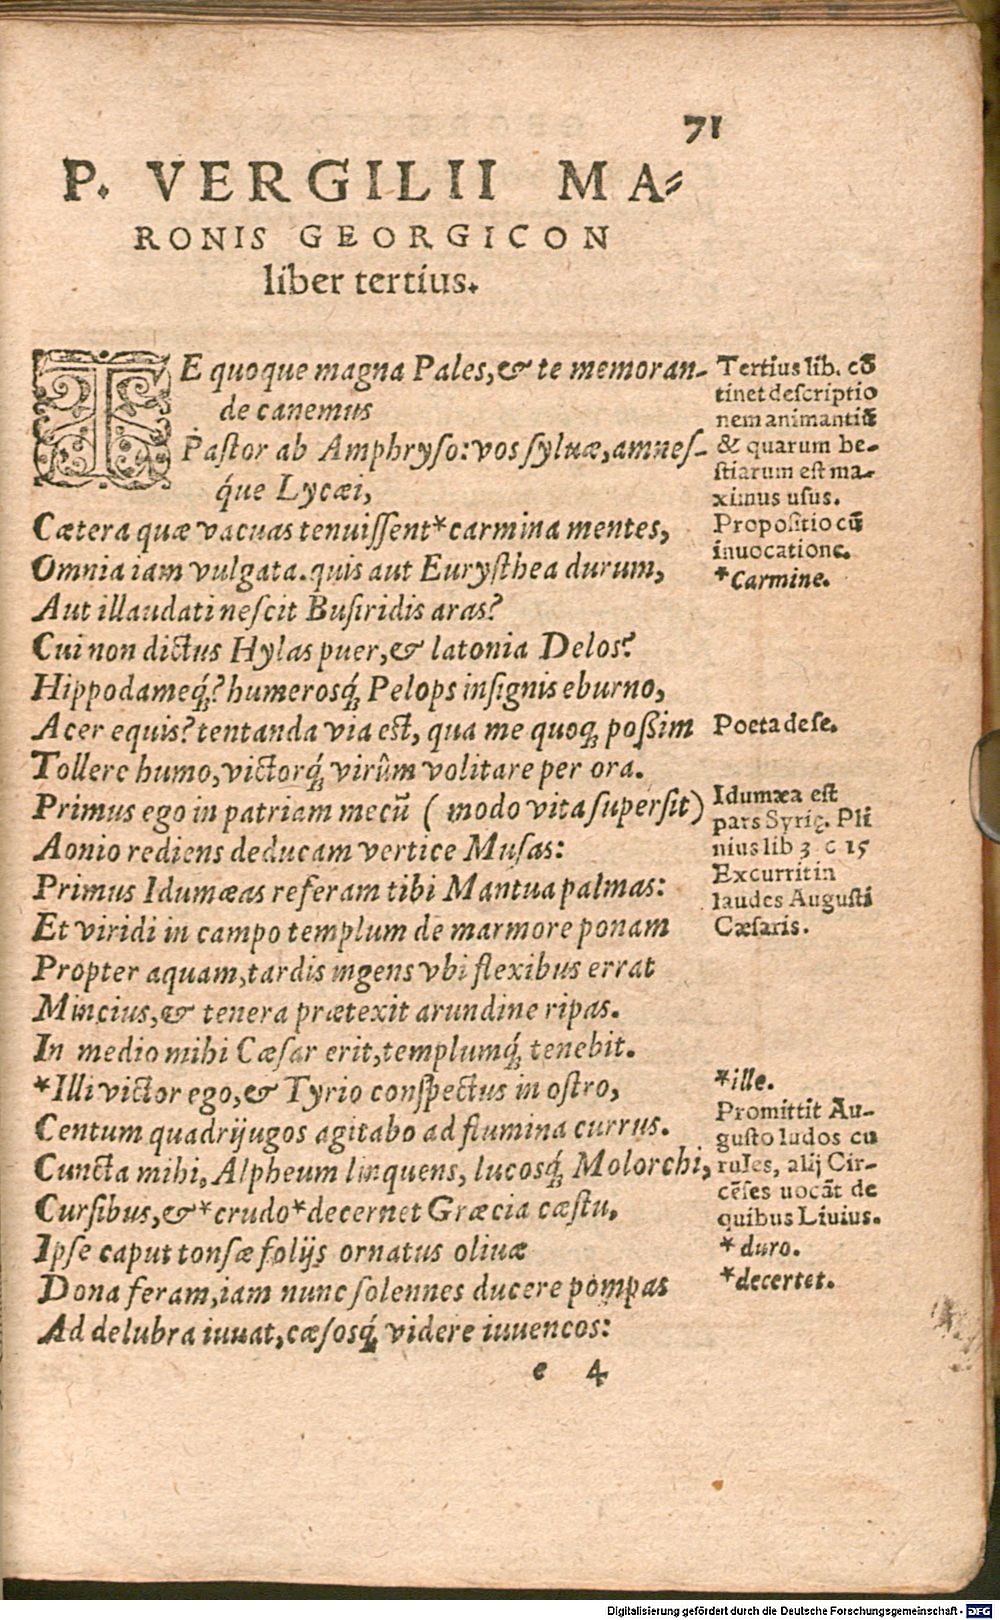 71
P. VERGILII MA-
RONIS GEORGICON
liber tertius.
TE quoque magna Pales, & te memoran-
de canemus
Pastor ab Amphryso: vos syluæ, amnes-
q́ue Lycæi,
Cætera quæ vacuas tenuissent*carmina mentes,
Omnia iam vulgata. quis aut Eurysthea durum,
Aut illaudati nescit Busiridis aras?
Cui non dictus Hylas puer, & latonia Delos?
Hippodameq́;? humerosq́; Pelops insignis eburno,
Acer equis? tentanda via est, qua me quoq; poßim
Tollere humo, victorq́; virûm volitare per ora.
Primus ego in patriam mecũ ( modo vita supersit)
Aonio rediens deducam vertice Musas:
Primus Idumæas referam tibi Mantua palmas:
Et viridi in campo templum de marmore ponam
Propter aquam, tardis ingens vbi flexibus errat
Mincius, & tenera prætexit arundine ripas.
In medio mihi Cæsar erit, templumq́; tenebit.
*Illi victor ego, & Tyrio conspectus in ostro,
Centum quadrijugos agitabo ad flumina currus.
Cuncta mihi, Alpheum linquens, lucosq́; Molorchi,
Cursibus, &*crudo*decernet Græcia cæstu.
Ipse caput tonsæ folijs ornatus oliuæ
Dona feram, iam nunc solennes ducere pompas
Ad delubra iuuat, cæsosq́; videre iuuencos:
e 4
Tertius lib. cõ
tinet descriptio
nem animantiũ
& quarum be-
stiarum est ma-
ximus usus.
Propositio cũ
inuocatione.
*Carmine.
Poeta de se.
Idumæa est
pars Syrię. Pli
nius lib 3 c 15
Excurrit in
laudes Augusti
Cæsaris.
*ille.
Promittit Au-
gusto ludos cu
rules, alij Cir-
cẽses uocãt de
quibus Liuius.
* duro.
*decertet.
Digitalisierung gefördert durch die Deutsche Forschungsgemeinschaft - DFG